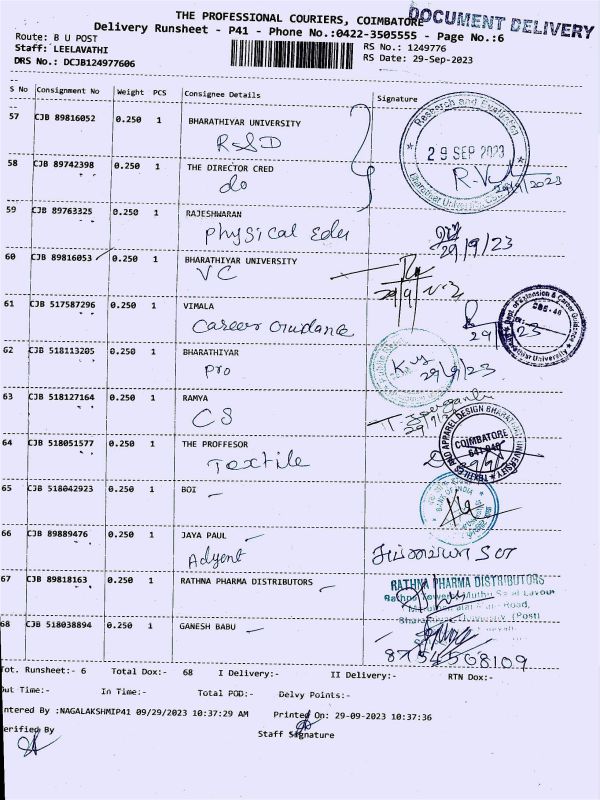 THE PROFESSIONAL COURIERS, COIMBATORE
DOCUMENT DELIVERY
Delivery Runsheet - P41 - Phone No.:0422-3505555 - Page No.:6
Route: B U POST
RS No.: 1249776
Staff: LEELAVATHI
RS Date: 29-Sep-2023
DRS No.: DCJB124977606
S No Consignment No Weight PCS Consignee Details Signature
57 CJB 89816052 0.250 1 BHARATHIYAR UNIVERSITY
R&D
29 SEP 2023
58 CJB 89742398 0.250 1 THE DIRECTOR CRED
do
59 CJB 89763325 0.250 1 RAJESHWARAN
Physical Edu
29/9/23
60 CJB 89816053 0.250 1 BHARATHIYAR UNIVERSITY
VC
61 CJB 517587296 0.250 1 VIMALA
Career Guidance
62 CJB 518113205 0.250 1 BHARATHIYAR
Pro
29/9/23
63 CJB 518127164 0.250 1 RAMYA
CS
64 CJB 518051577 0.250 1 THE PROFFESOR
Textile
COIMBATORE
641 046
65 CJB 518042923 0.250 1 BOI
BANK OF INDIA
66 CJB 89889476 0.250 1 JAYA PAUL
67 CJB 89818163 0.250 1 RATHNA PHARMA DISTRIBUTORS
RATHNA PHARMA DISTRIBUTORS
68 CJB 518038894 0.250 1 GANESH BABU
8754508109
Tot. Runsheet:- 6 Total Dox:- 68 I Delivery:- II Delivery:- RTN Dox:-
Out Time:- In Time:- Total POD:- Delvy Points:-
ntered By :NAGALAKSHMIP41 09/29/2023 10:37:29 AM Printed On: 29-09-2023 10:37:36
erified By
Staff Signature